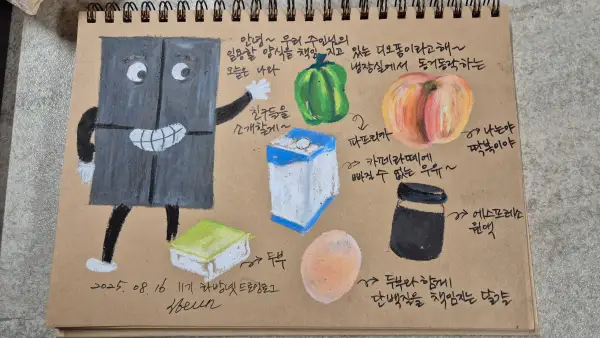 안녕~ 우리 주인님의
일용할 양식을 책임 지고 있는 디오퐁이라고해~
오늘은 나와 냉장실에서 동거동락하는
친구들을
소개할게~
파프리카
나는야
딱복이야
카페라떼에
빠질 수 없는 우유~
에스프레소
원액
두부
두부와 함께
단백질을 책임지는 달걀
2025. 08. 16 11기